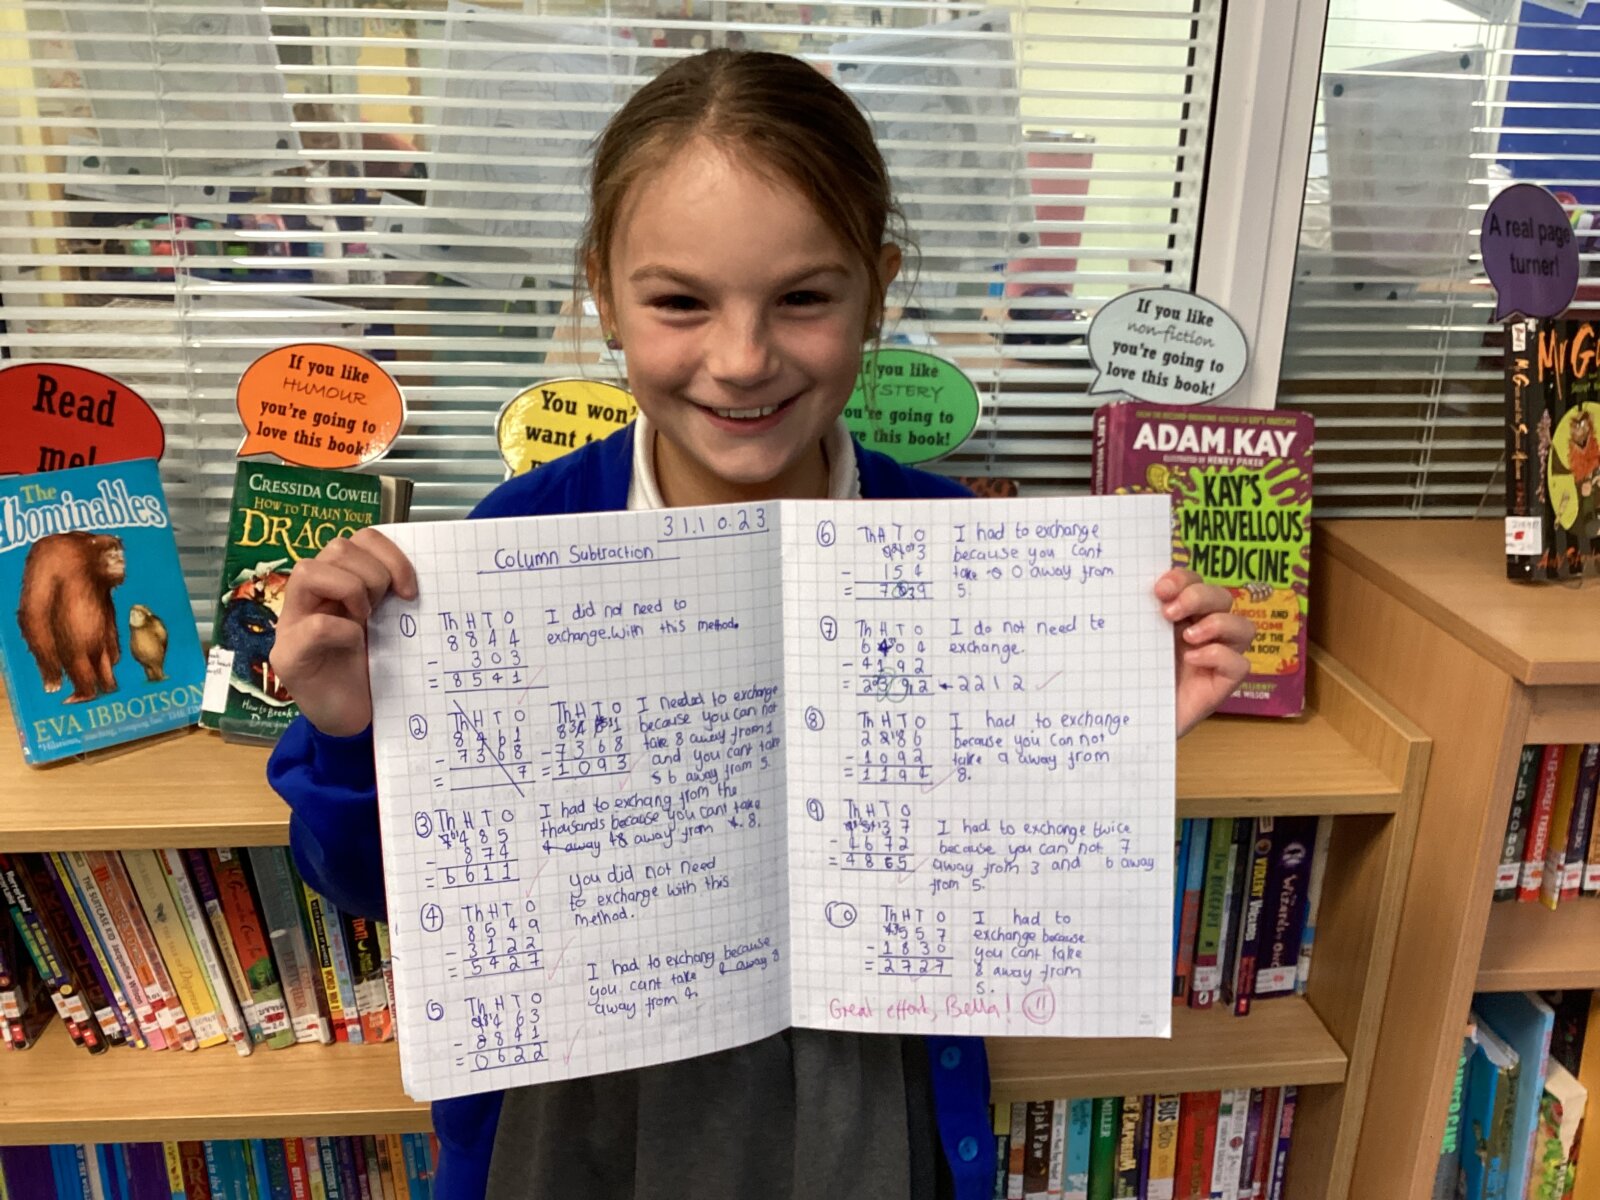 Read
me!
If you like
HUMOUR
you're going to
love this book!
You won'
want to
If you like
MYSTERY
you're going to
love this book!
If you like
non-fiction
you're going to
love this book!
A real page
turner!
The
Abominables
EVA IBBOTSON
CRESSIDA COWELL
HOW TO TRAIN YOUR
DRAGO
ADAM KAY
ILLUSTRATED BY HENRY PAKER
KAY'S
MARVELLOUS
MEDICINE
31.10.23
Column Subtraction
1 Th H T O
8 8 4 4
- 3 0 3
= 8 5 4 1
I did not need to
exchange.with this method.
2 Th H T O
8 4 6 1
- 7 3 6 8
= 7
Th H T O
- 7 3 6 8
= 1 0 9 3
I needed to exchange
because you can not
take 8 away from 1
and you cant take
6 away from 5.
3 Th H T O
4 8 5
- 8 7 4
= 6 6 1 1
I had to exchang from the
thousands because you cant take
away 8 away from 8.
4 Th H T O
8 5 4 9
- 3 1 2 2
= 5 4 2 7
you did not need
to exchange with this
method.
5 Th H T O
4 6 3
- 8 8 4 1
= 0 6 2 2
I had to exchang because
you cant take away 8
away from 4.
6 Th H T O
- 1 5 4
I had to exchange
because you cant
take 0 away from
5.
7 Th H T O
- 4 1 9 2
2 2 1 2
I do not need te
exchange.
8 Th H T O
- 1 0 9 2
= 1 1 9 4
I had to exchange
because you can not
take 9 away from
8.
9 Th H T O
- 4 6 7 2
= 4 8 6 5
I had to exchange twice
because you can not 7
away from 3 and 6 away
from 5.
10 Th H T O
5 5 7
- 1 8 3 0
= 2 7 2 7
I had to
exchange because
you cant take
8 away from
5.
Great effort, Bella!